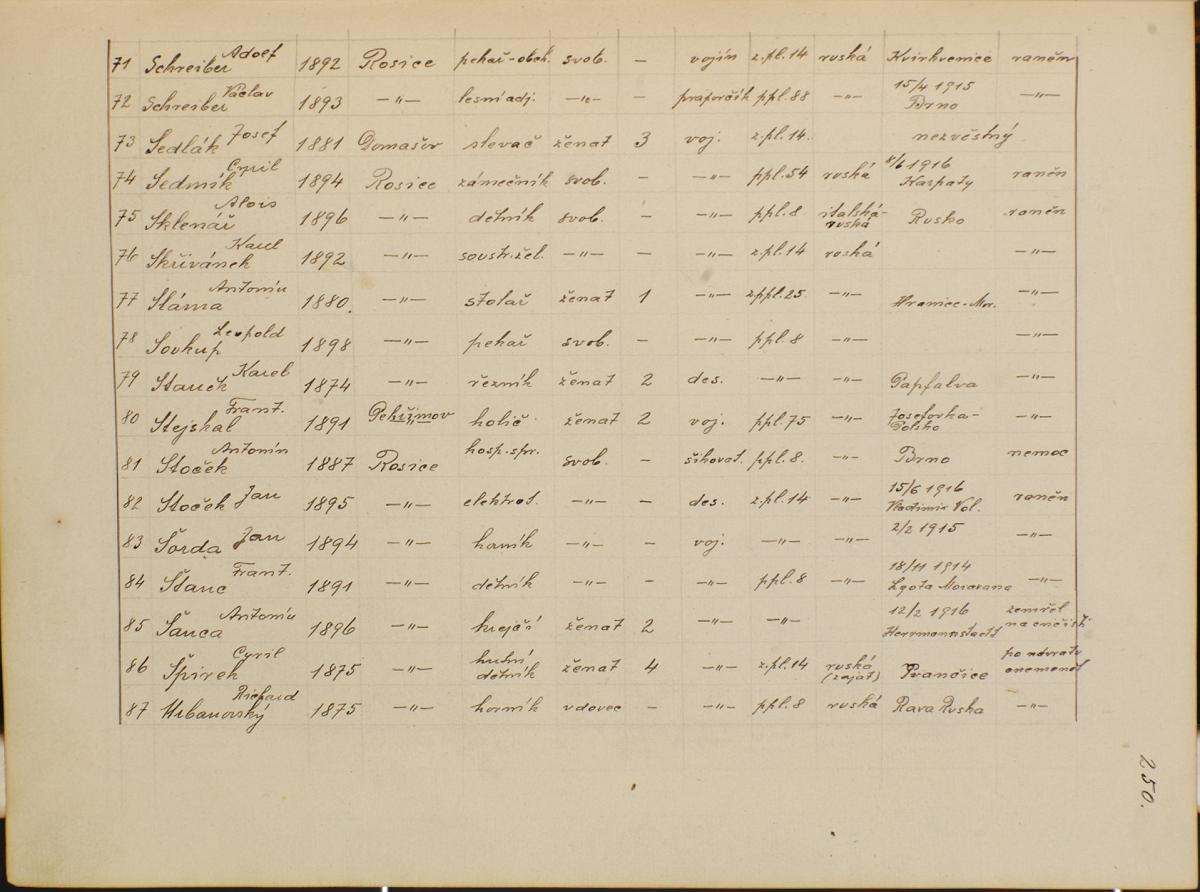 71 Schreiber Adolf 1892 Rosice pekař-obch. svob. — vojín z.pl.14 ruská Kvirhvenice raněn
72 Schreiber Václav 1893 —"— lesní adj. —"— praporčík ppl.88 —"— 15/4 1915 Brno —"—
73 Sedlák Josef 1881 Domašov slevač ženat 3 voj. z.pl.14. nezvěstný
74 Sedmík Cyril 1894 Rosice zámečník svob. — —"— ppl.54 ruská 8/6 1916 Karpaty raněn
75 Sklenář Alois 1896 —"— dělník svob. — —"— ppl.8 italská-ruská Rusko raněn
76 Skřivánek Karel 1892 —"— soustr.žel. —"— — —"— z.pl.14 ruská —"—
77 Sláma Antonín 1880. —"— stolař ženat 1 —"— z.ppl.25 —"— Hranice-Mor. —"—
78 Soukup Leopold 1898 —"— pekař svob. — —"— ppl.8 —"— —"—
79 Staněk Karel 1874 —"— řezník ženat 2 des. —"— —"— Papfalva —"—
80 Stejskal Frant. 1891 holič ženat 2 voj. ppl.75 —"— Josefovka-Polsko —"—
81 Stoček Antonín 1887 Rosice hosp.spr. svob. — šikovat. ppl.8. —"— Brno nemoc
82 Stoček Jan 1895 —"— elektrot. —"— — des. z.pl.14 —"— 15/6 1916 Vladimir Vol. raněn
83 Šorda Jan 1894 —"— horník —"— — voj. —"— —"— 2/2 1915 —"—
84 Štanc Frant. 1891 —"— dělník —"— — —"— ppl.8 —"— 18/11 1914 Lgota Moravana —"—
85 Šauca Antonín 1896 —"— krejčí ženat 2 —"— —"— 12/2 1916 Herrmannstadt zemřel
86 Špirek Cyril 1875 —"— hutní dělník ženat 4 —"— z.pl.14 ruská (zajat) Ivančice po návratu onemocněl
87 Urbanovský Richard 1875 —"— horník vdovec — —"— ppl.8 ruská Rava Ruska —"—
250.